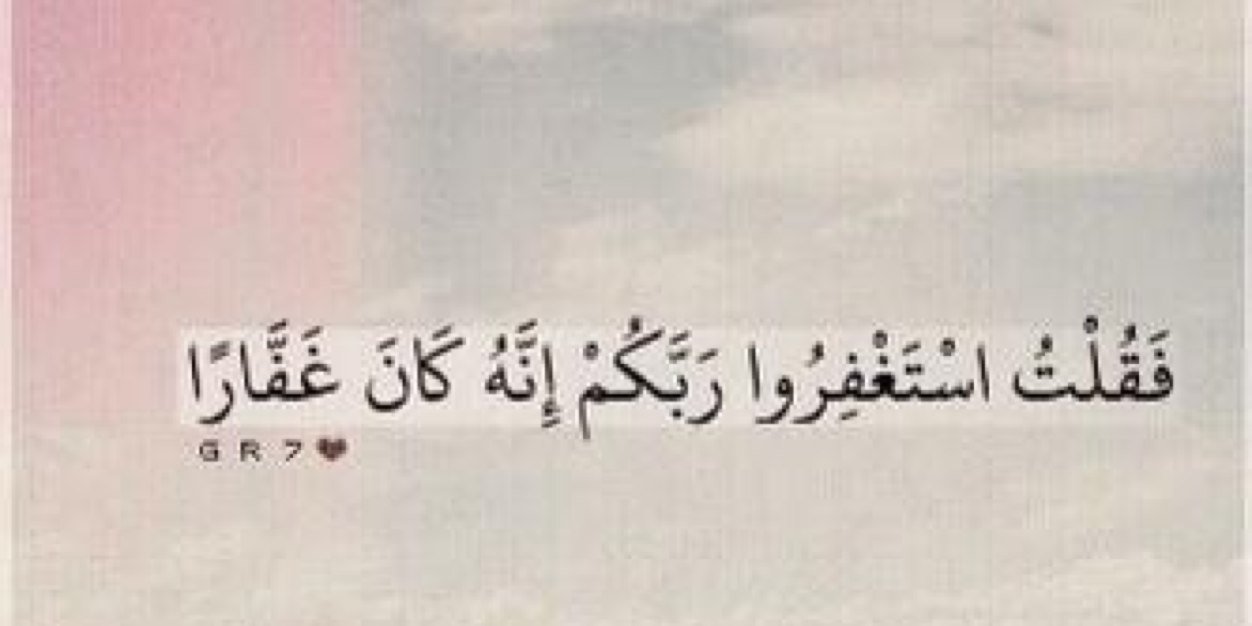 فَقُلْتُ اسْتَغْفِرُوا رَبَّكُمْ إِنَّهُ كَانَ غَفَّارًا
G R 7